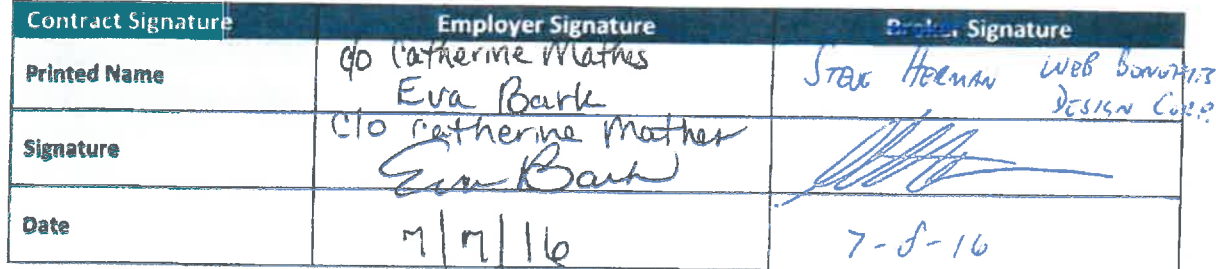 Contract Signature Employer Signature Broker Signature
Printed Name c/o Catherine Mathes Steve Herman Web Benefits
Eva Bark Design Corp.
Signature c/o Catherine Mather
Eva Bark
Date 7/7/16 7-8-16